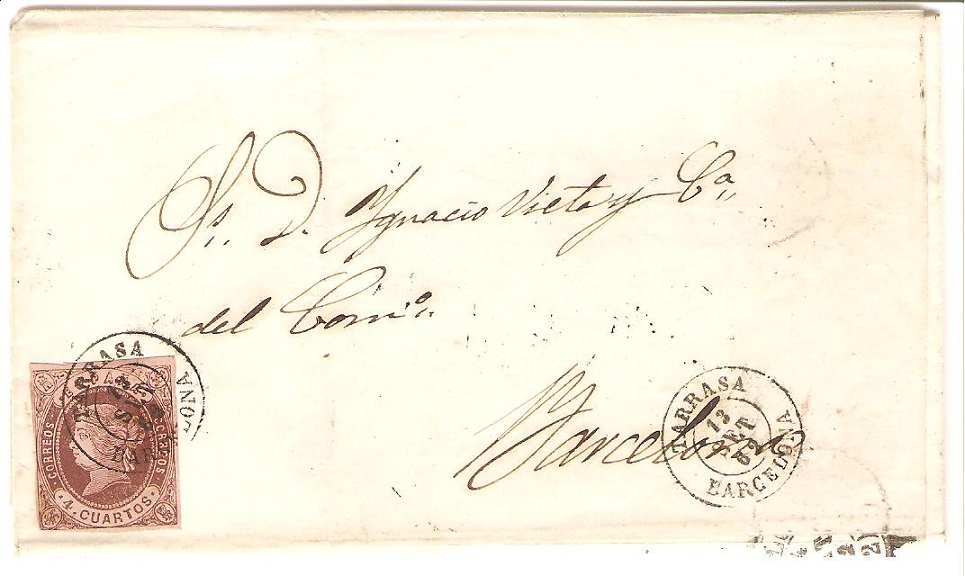 Sr. D. Ygnacio Vieta y Ca.
del Como.
Barcelona
TARRASA
13
SET
62
BARCELONA
TARRASA
BARCELONA
CORREOS
ESPAÑA
CORREOS
4 CUARTOS